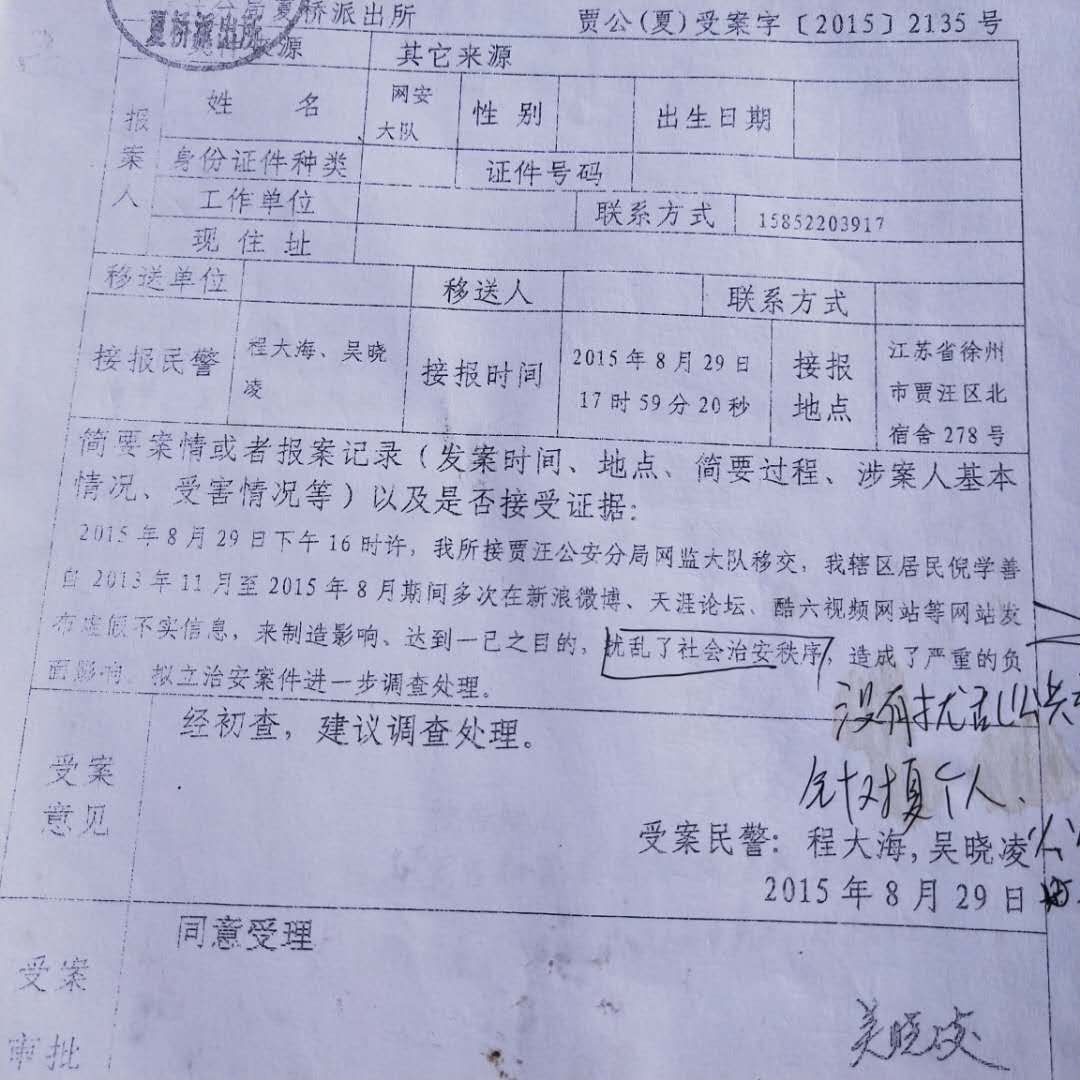 分局夏桥派出所
贾公(夏)受案字〔2015〕2135 号
夏桥派出所
来源 其它来源
报案人
姓 名 网安大队 性 别 出生日期
身份证件种类 证件号码
工作单位 联系方式 15852203917
现 住 址
移送单位 移送人 联系方式
接报民警 程大海、吴晓凌 接报时间 2015 年 8 月 29 日 17 时 59 分 20 秒 接报地点 江苏省徐州市贾汪区北宿舍 278 号
简要案情或者报案记录(发案时间、地点、简要过程、涉案人基本
情况、受害情况等)以及是否接受证据:
2015 年 8 月 29 日下午 16 时许，我所接贾汪公安分局网监大队移交，我辖区居民倪学善
自 2013 年 11 月至 2015 年 8 月期间多次在新浪微博、天涯论坛、酷六视频网站等网站发
布虚假不实信息，来制造影响、达到一己之目的，扰乱了社会治安秩序，造成了严重的负
面影响。拟立治安案件进一步调查处理。
没有扰乱公共
针对夏个人、
受案意见
经初查，建议调查处理。
受案民警: 程大海,吴晓凌
2015 年 8 月 29 日
受案审批
同意受理